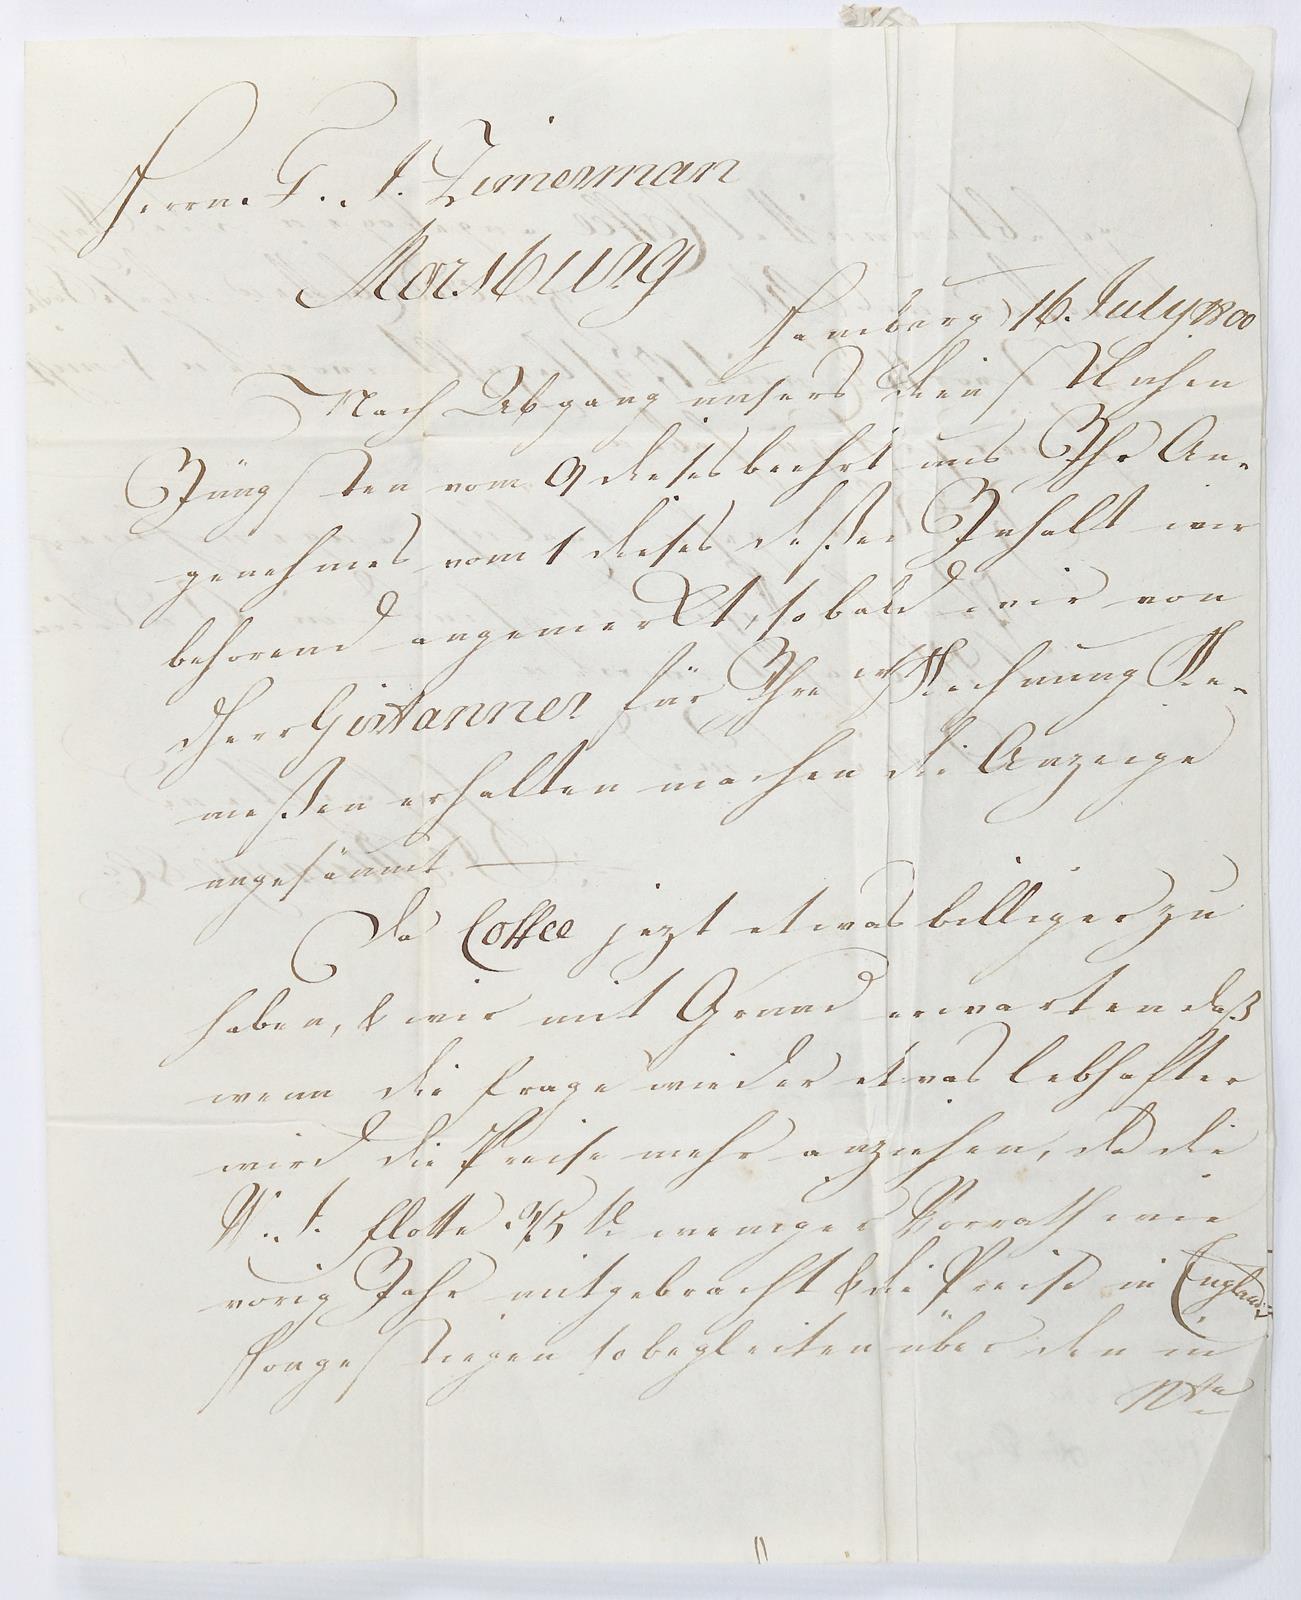 Herrn F. J. Zimerman
Morsburg
Hamburg 16. July 1800
Nach Abgang unsers dienstlichen
Jüngsten vom 9 dieses beehrt uns Ihr An-
genehmes vom 1 dieses deßen Inhalt wir
behorend angemerkt, so bald wir von
Herr Girtanner für Ihre Rechnung Re-
meßen erhalten machen die Anzeige
ungesäumt
Da Coffee jezt etwas billiger zu
haben, & wir mit Grund erwarten daß
wenn die frage wieder etwas lebhafter
wird die Preise mehr anziehen, da die
W. J. flotte 3/5 weniger Vorrath wie
vorig Jahr mitgebracht & die Preise in England
gestiegen so begleiten über den in